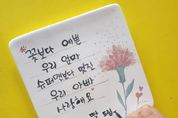 꽃보다 예쁜
우리 엄마
슈퍼맨보다 멋진
우리 아빠
사랑해요